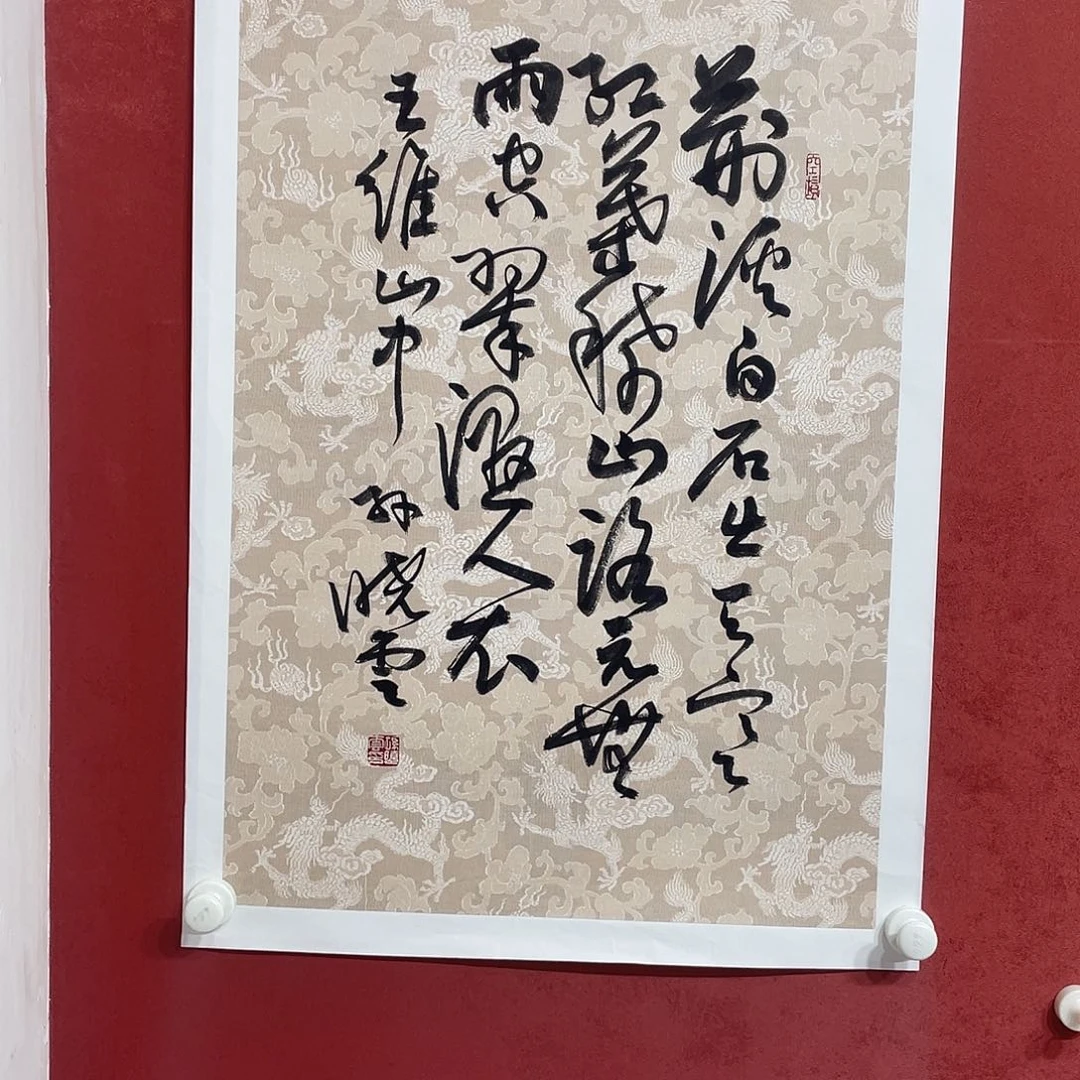 荆溪白石出天寒
紅葉稀山路元無
雨空翠濕人衣
王維山中 孫曉雲